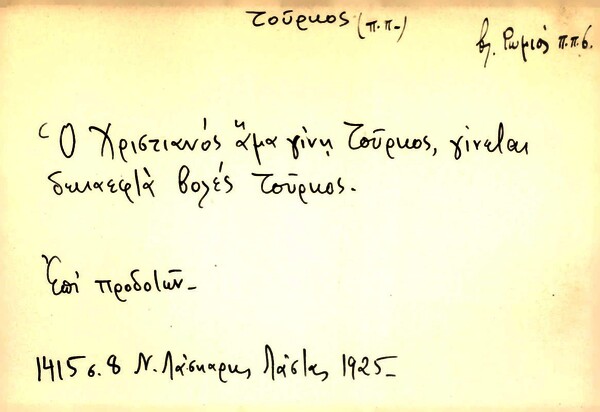 τοῦρκος (π.π.)
βλ. Ρωμιός π.π.6.
Ὁ Χριστιανός ἅμα γίνῃ Τοῦρκος, γίνεται
δεκαεφτὰ βολές Τοῦρκος.
Ἐπί προδοτῶν_
1415 σ. 8 Ν. Λάσκαρης Λάστας 1925_